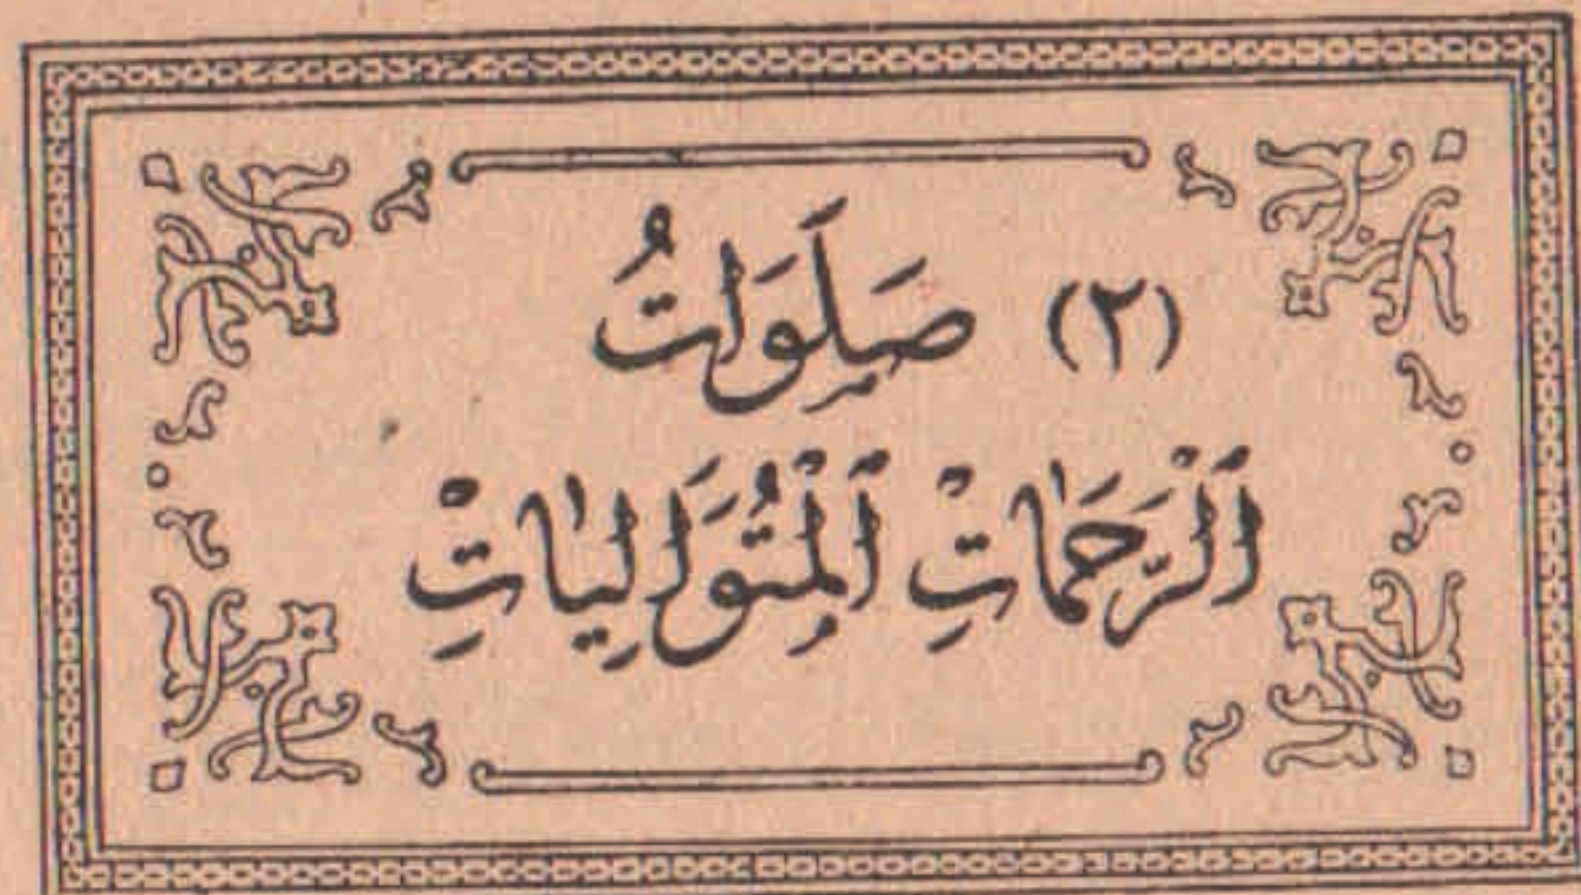 (٢) صَلَوَاتُ
اَلرَّحَمَاتِ اَلْمُتَوَالِيَاتِ